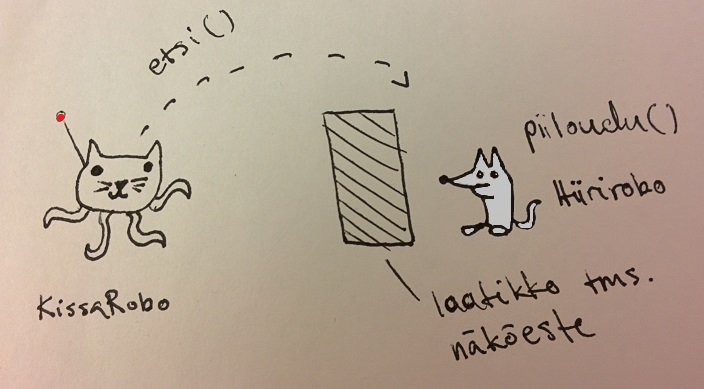 etsi()
piiloudu()
Hiirirobo
KissaRobo
laatikko tms.
näköeste